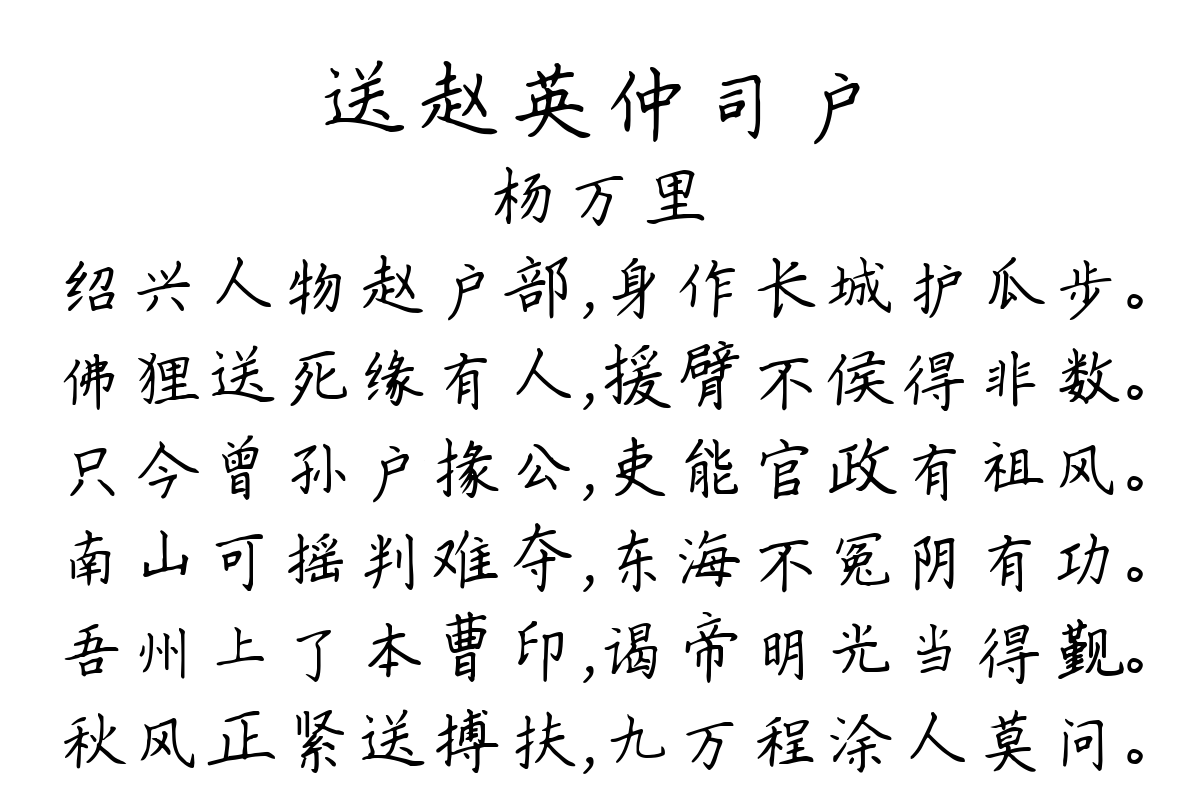 送赵英仲司户
杨万里
绍兴人物赵户部,身作长城护瓜步。
佛狸送死缘有人,援臂不侯得非数。
只今曾孙户掾公,吏能官政有祖风。
南山可摇判难夺,东海不冤阴有功。
吾州上了本曹印,谒帝明光当得觐。
秋风正紧送搏扶,九万程涂人莫问。